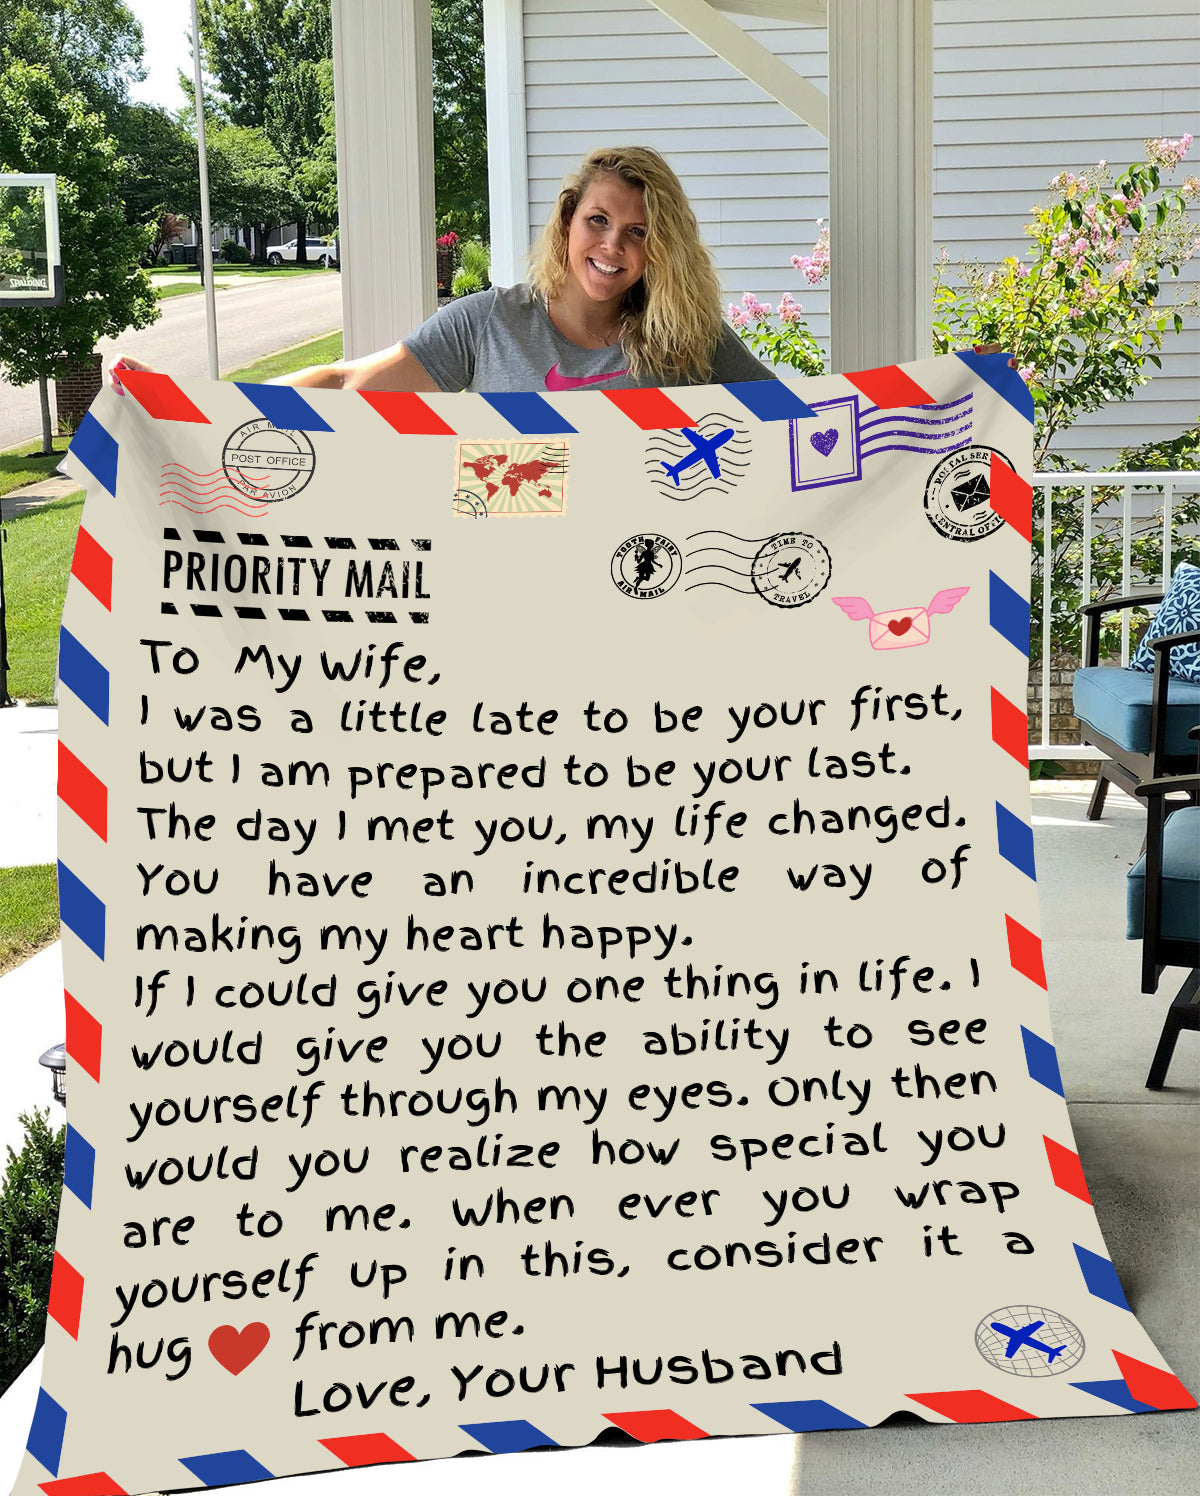 SPALDING
AIR MAIL
POST OFFICE
PAR AVION
POSTAL SER
CENTRAL OFFI
PRIORITY MAIL
TOOTH FAIRY
AIR MAIL
TIME TO
TRAVEL
To My Wife,
I was a little late to be your first,
but I am prepared to be your last.
The day I met you, my life changed.
You have an incredible way of
making my heart happy.
If I could give you one thing in life. I
would give you the ability to see
yourself through my eyes. Only then
would you realize how special you
are to me. When ever you wrap
yourself up in this, consider it a
hug from me.
Love, Your Husband